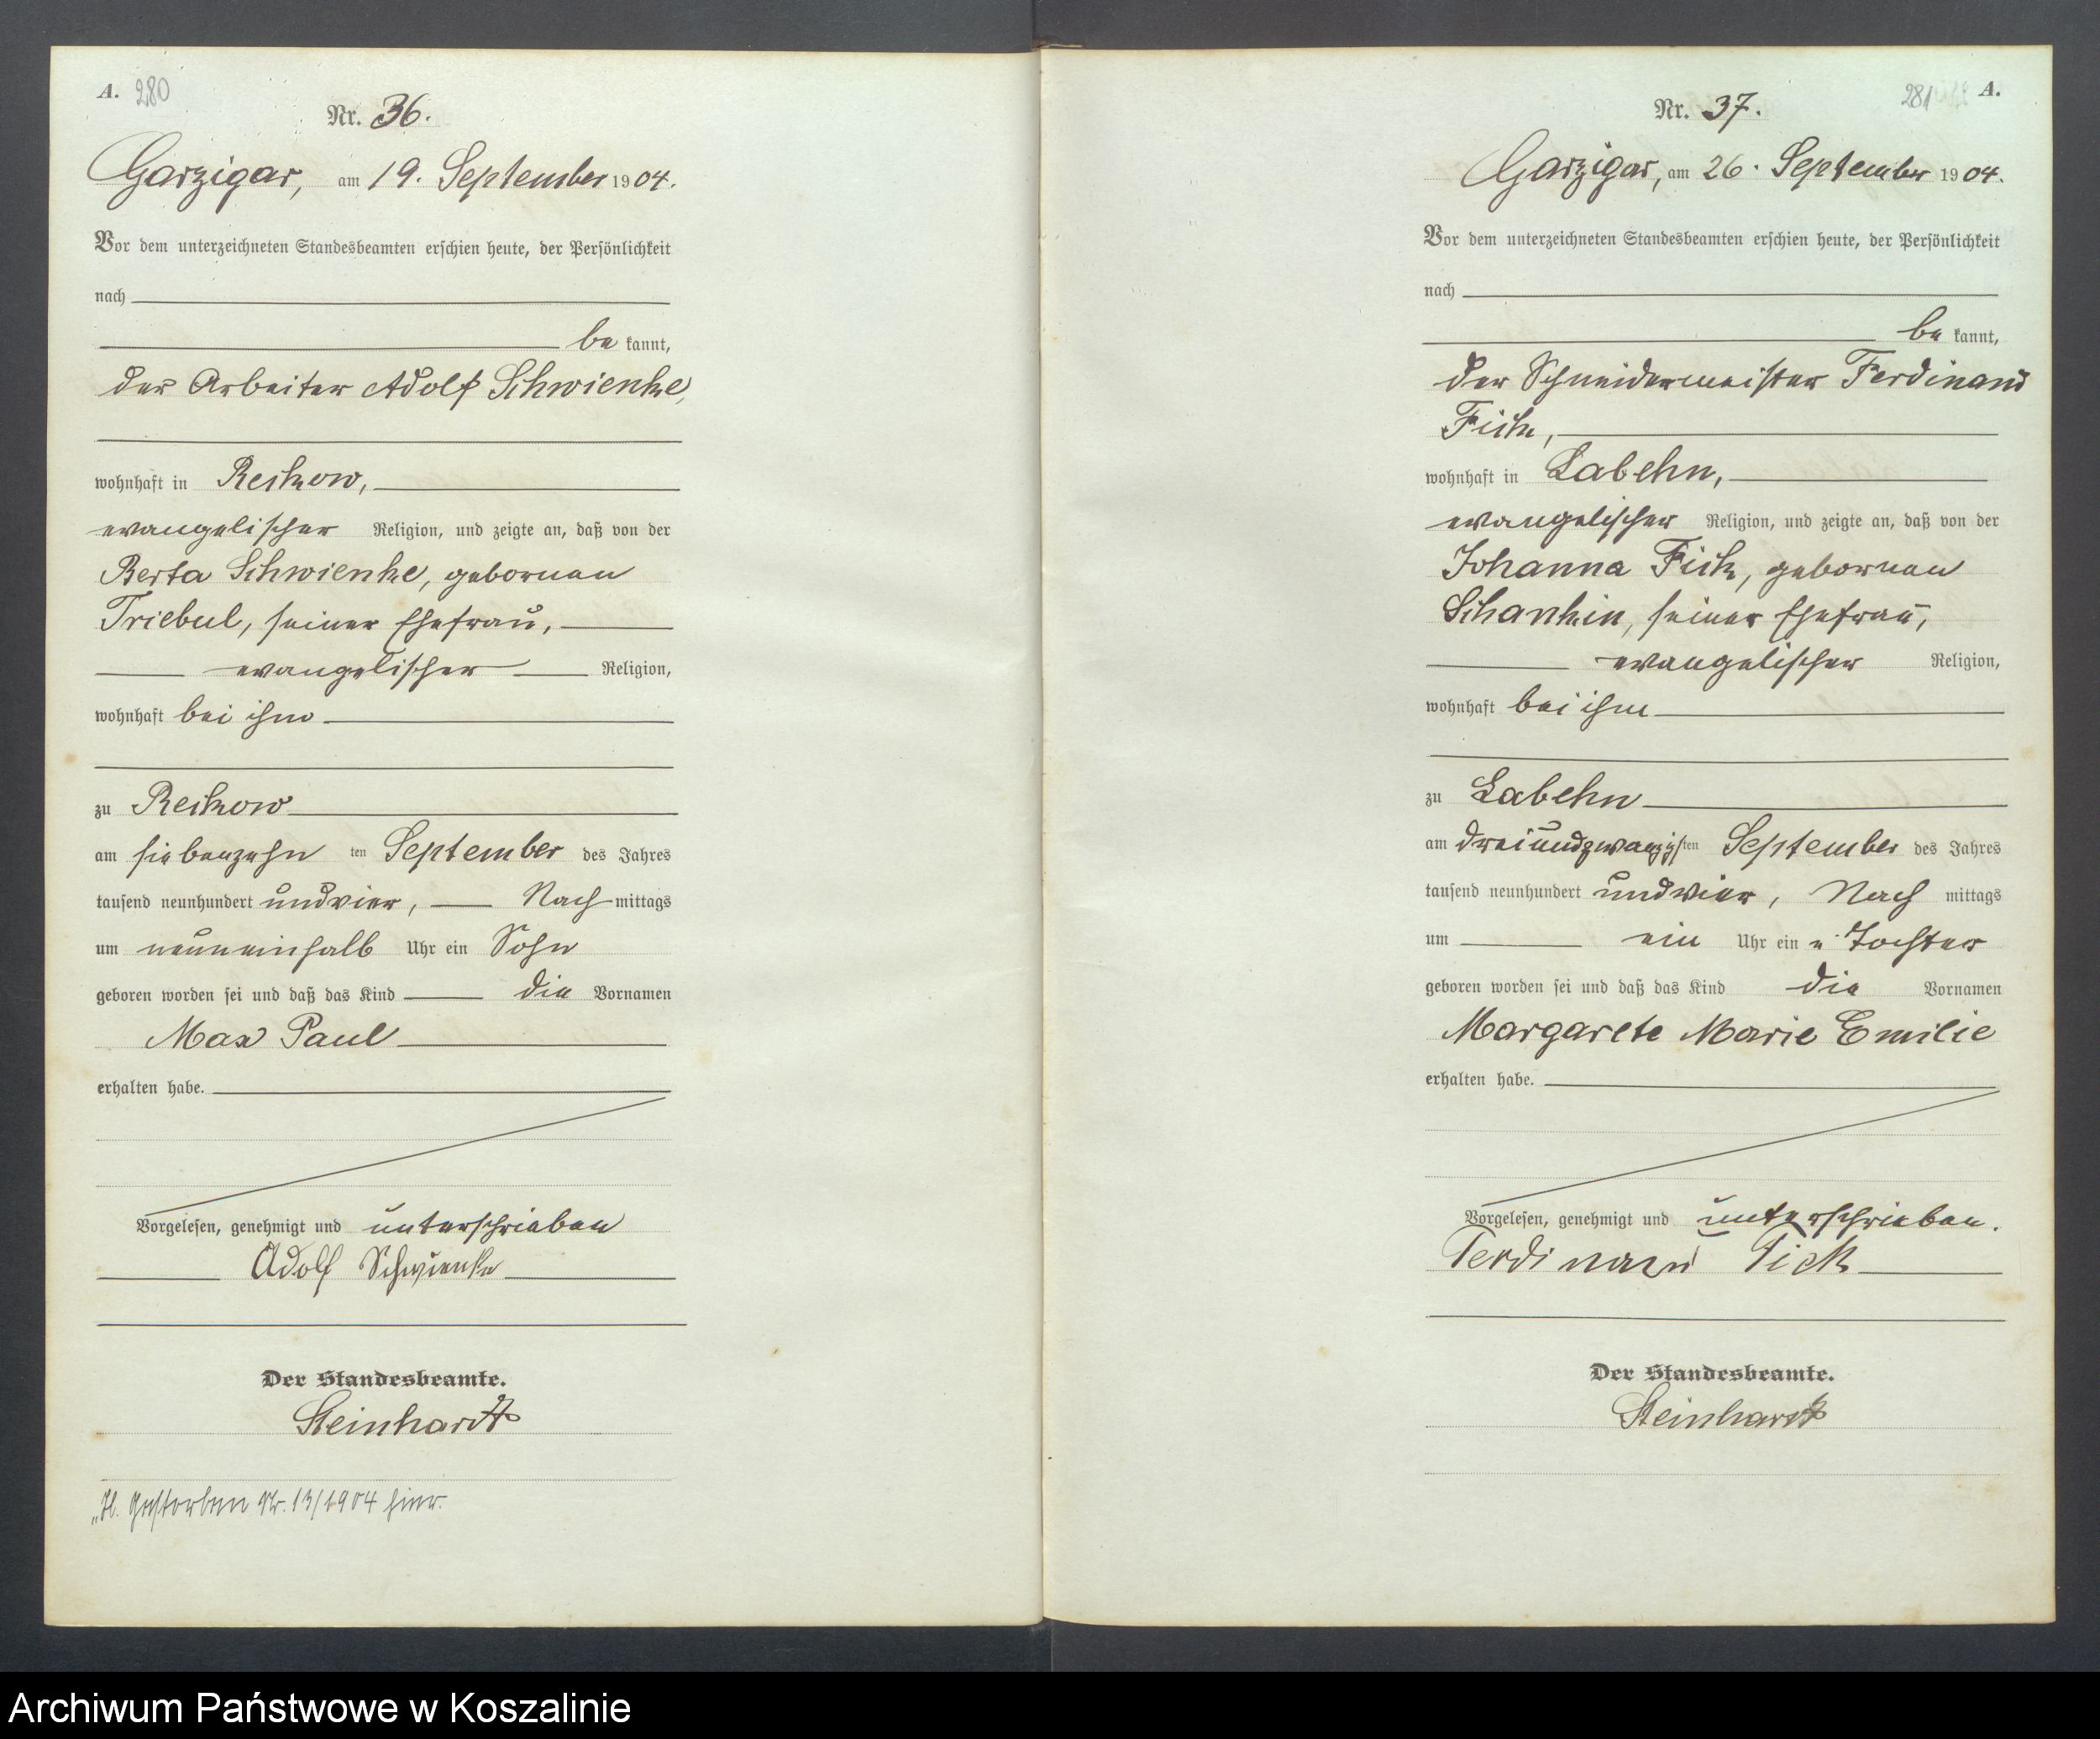 A. 280
Nr. 36.
Garzigar, am 19. September 1904.
Vor dem unterzeichneten Standesbeamten erschien heute, der Persönlichkeit
nach
be kannt,
der Arbeiter Adolf Schwienke,
wohnhaft in Reckow,
evangelischer Religion, und zeigte an, daß von der
Berta Schwienke, geborenen
Triebul, seiner Ehefrau,
evangelischer Religion,
wohnhaft bei ihm
zu Reckow
am siebenzehn ten September des Jahres
tausend neunhundert undvier, Nach mittags
um neuneinhalb Uhr ein Sohn
geboren worden sei und daß das Kind die Vornamen
Max Paul
erhalten habe.
Vorgelesen, genehmigt und unterschrieben
Adolf Schwienke
Der Standesbeamte.
Steinhardt
Gestorben Nr. 13/1904 hier.
281 A.
Nr. 37.
Garzigar, am 26. September 1904.
Vor dem unterzeichneten Standesbeamten erschien heute, der Persönlichkeit
nach
be kannt,
der Schneidermeister Ferdinand
Fick,
wohnhaft in Labehn,
evangelischer Religion, und zeigte an, daß von der
Johanna Fick, geborenen
Schankin, seiner Ehefrau,
evangelischer Religion,
wohnhaft bei ihm
zu Labehn
am dreiundzwanzigsten September des Jahres
tausend neunhundert undvier, Nach mittags
um ein Uhr ein e Tochter
geboren worden sei und daß das Kind die Vornamen
Margarete Marie Emilie
erhalten habe.
Vorgelesen, genehmigt und unterschrieben.
Ferdinand Fick
Der Standesbeamte.
Steinhardt
Archiwum Państwowe w Koszalinie